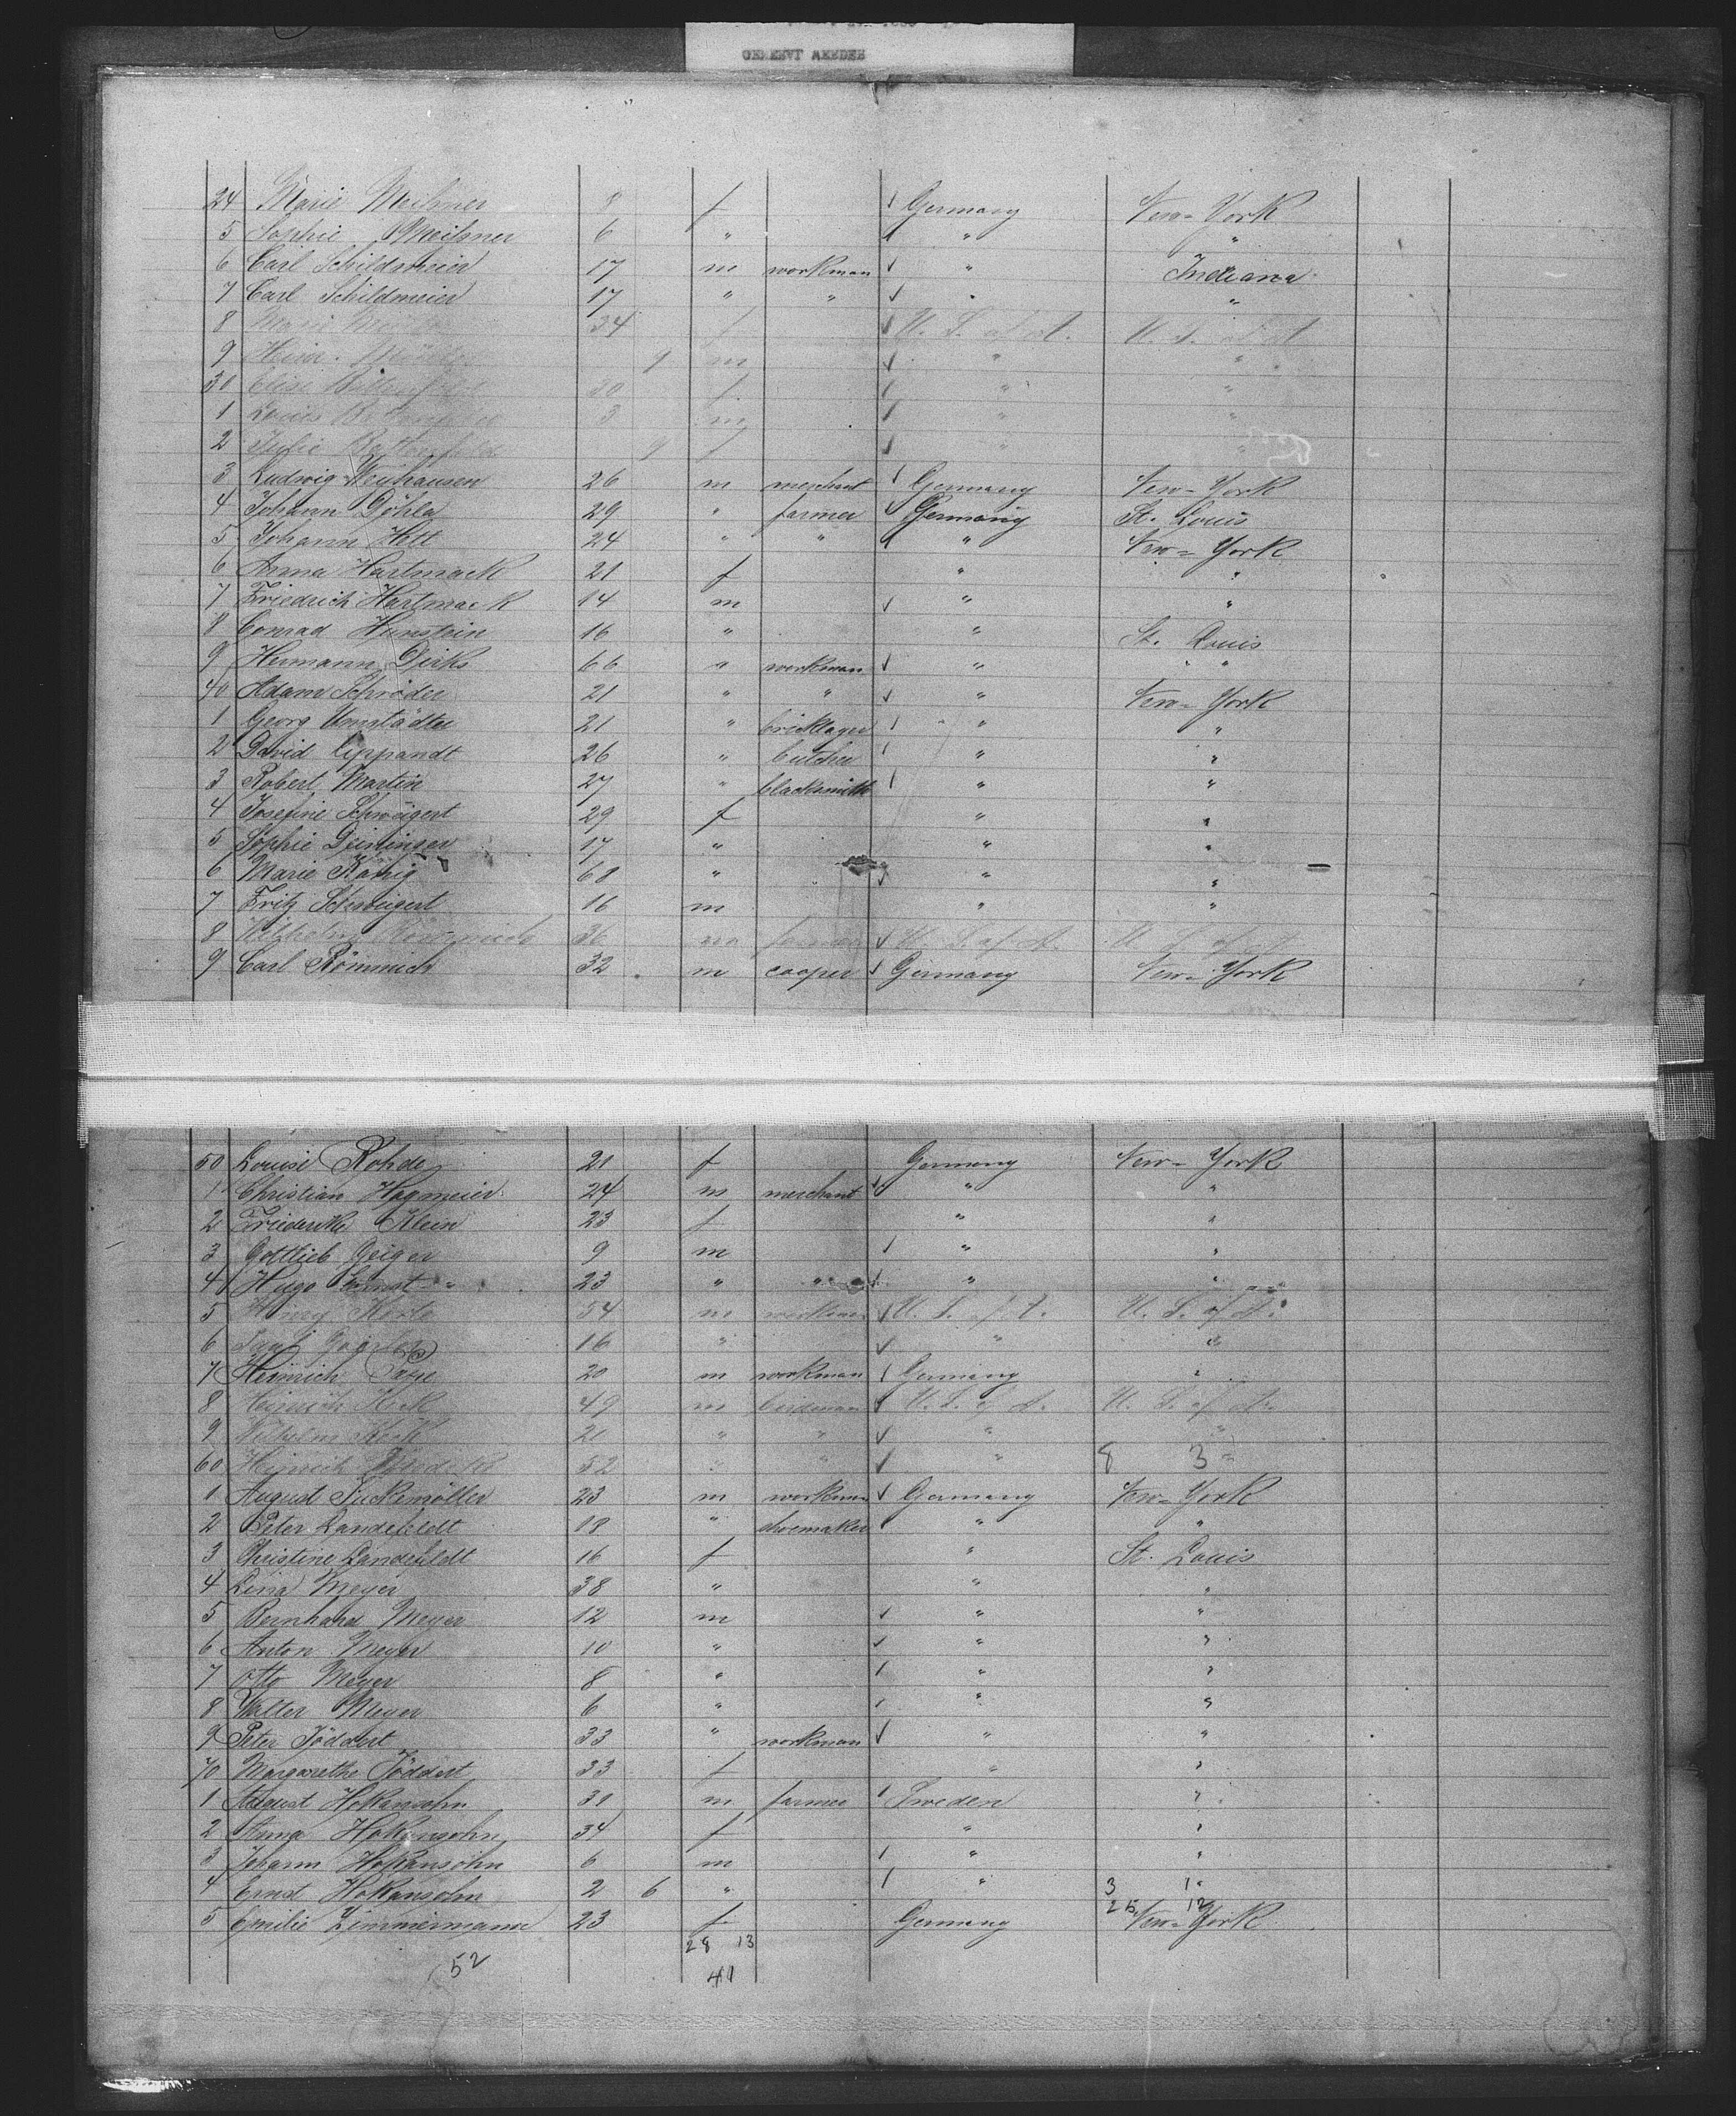 24 Marie Meihsner 8 f Germany New-York
5 Sophie Meihsner 6 " " "
6 Carl Schildmeier 17 m workman " Indiana
7 Carl Schildmeier 17 " " " "
8 Marie 34 f U. S. of A. U. S. of A.
9 Heinr. 9 m " "
30 Elise 30 f " "
1 Louis 3 m " "
2 Julie 9 f " "
3 Ludwig Weyhausen 26 m merchant Germany New-York
4 Johann Döhla 29 " farmer Germany St. Louis
5 Johann Hett 24 " " " New-York
6 Anna Hartmack 21 f " "
7 Friedrich Hartmack 14 m " "
8 Conrad Hunstein 16 " " St. Louis
9 Hermann Dirks 66 " workman " "
40 Adam Schröder 21 " " " New-York
1 Georg Umstädter 21 " bricklayer " "
2 David Lippandt 26 " butcher " "
3 Robert Martin 27 " blacksmith " "
4 Josefine Schweigert 29 f " "
5 Sophie Deininger 17 " " "
6 Marie König 68 " " "
7 Fritz Schweigert 16 m " "
8 Wilhelm 36 m farmer U. S. of A. U. S. of A.
9 Carl Römmich 32 m cooper Germany New-York
50 Louise Rohde 21 f Germany New-York
1 Christian Hagmeier 24 m merchant " "
2 Friederike Klein 23 f " "
3 Gottlieb Geiger 9 m " "
4 Hugo Ernst 23 " " " "
5 Henry Korte 54 m workman U. S. of A. U. S. of A.
6 16 " " "
7 Heinrich Pape 20 m workman Germany "
8 Heinrich Keck 49 m U. S. of A. U. S. of A.
9 Wilhelm Keck 21 " " " "
60 Heinrich 52 " " " 8 3 =
1 August Suckmöller 23 m workman Germany New-York
2 Peter Landefeldt 18 " shoemaker " "
3 Christine Landefeldt 16 f " St. Louis
4 Lina Meyer 38 " " "
5 Bernhard Meyer 12 m " "
6 Anton Meyer 10 " " "
7 Otto Meyer 8 " " "
8 Walter Meyer 6 " " "
9 Peter Jöddert 33 " workman " "
70 Margarethe Jöddert 33 f " "
1 August Hokansohn 31 m farmer Sweden "
2 Anna Hokansohn 34 f " "
3 Johann Hokansohn 6 m " "
4 Ernst Hokansohn 2 6 " " 3 1 "
5 Emilie Zimmermann 23 f Germany 25 12 New-York
28 13
52 41